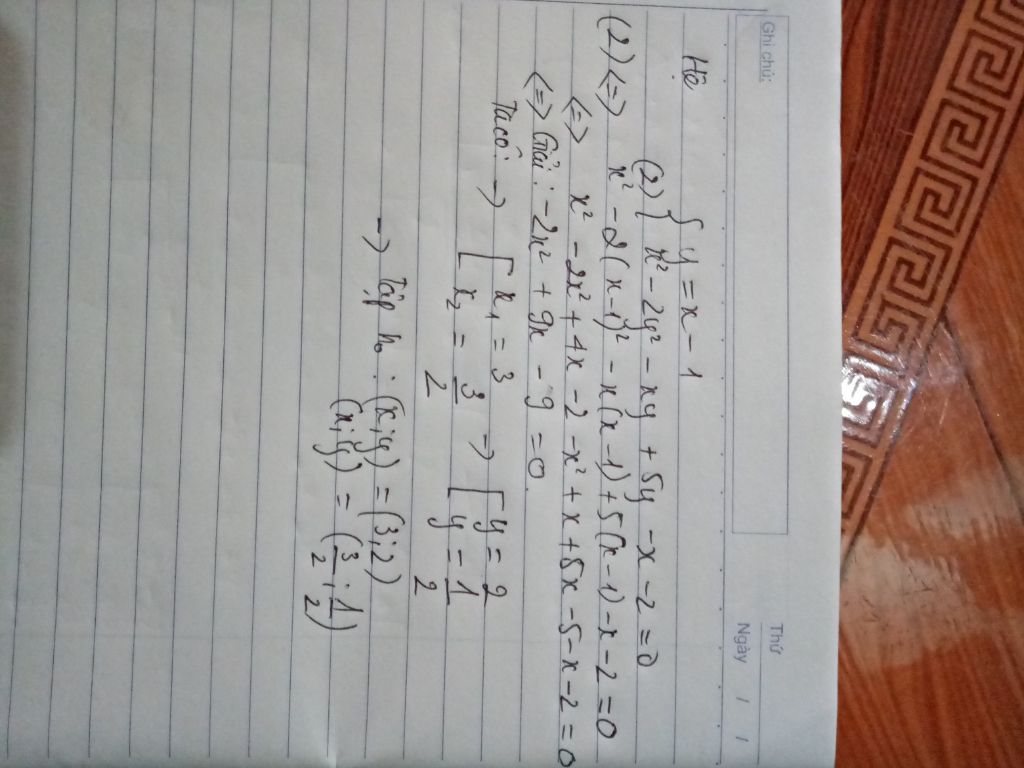 Ghi chú:
Thứ
Ngày / /
Hệ { y = x - 1
(2) { x² - 2y² - xy + 5y - x - 2 = 0
(2) <=> x² - 2(x-1)² - x(x-1) + 5(x-1) - x - 2 = 0
<=> x² - 2x² + 4x - 2 - x² + x + 5x - 5 - x - 2 = 0
<=> Giải: -2x² + 9x - 9 = 0.
Ta có: → [ x₁ = 3 → [ y = 2
x₂ = 3/2 y = 1/2
→ Tập no : (x;y) = (3;2)
(x;y) = (3/2 ; 1/2)